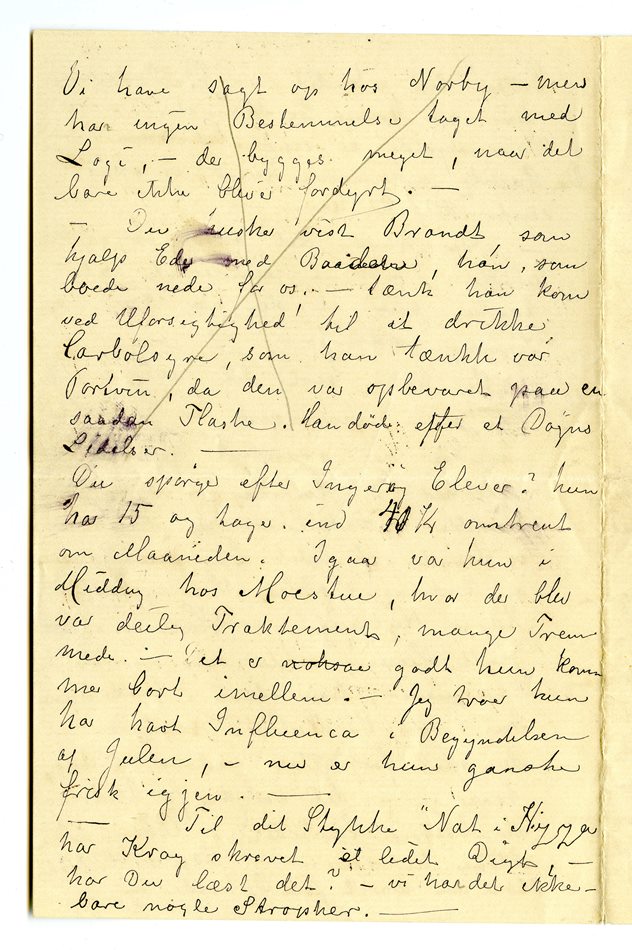 Vi have sagt op hos Norby – men
har ingen Bestemmelse taget med
Logi, – der bygges meget, naar det
bare ikke bliver fordyrt. –
– Du husker vist Brandt, som
hjalp med Baaden, han, som
boede nede for os. – tænk han kom
ved Uforsigtighed til at drikke
Carbolsyre, som han tænkte var
Portvin, da den var opbevaret paa en
saadan Flaske. Han døde efter et Døgns
Lidelser. –
Du spørger efter Elever? hun
har 15 og tager ind Kr omtrent
om Maaneden. Igaar var hun i
Middag hos Moestue, hvor der blev
var deilig Traktement, mange Frem
mede. – Det er godt hun kom
mer bort imellem. – Jeg tror hun
har havt Influenca i Begyndelsen
af Julen, – nu er hun ganske
frisk igjen. –
– Til dit Stykke "Nat i
har Krag skrevet et lidet Digt, –
har Du læst det? – vi har det ikke –
bare nogle Stropher. –